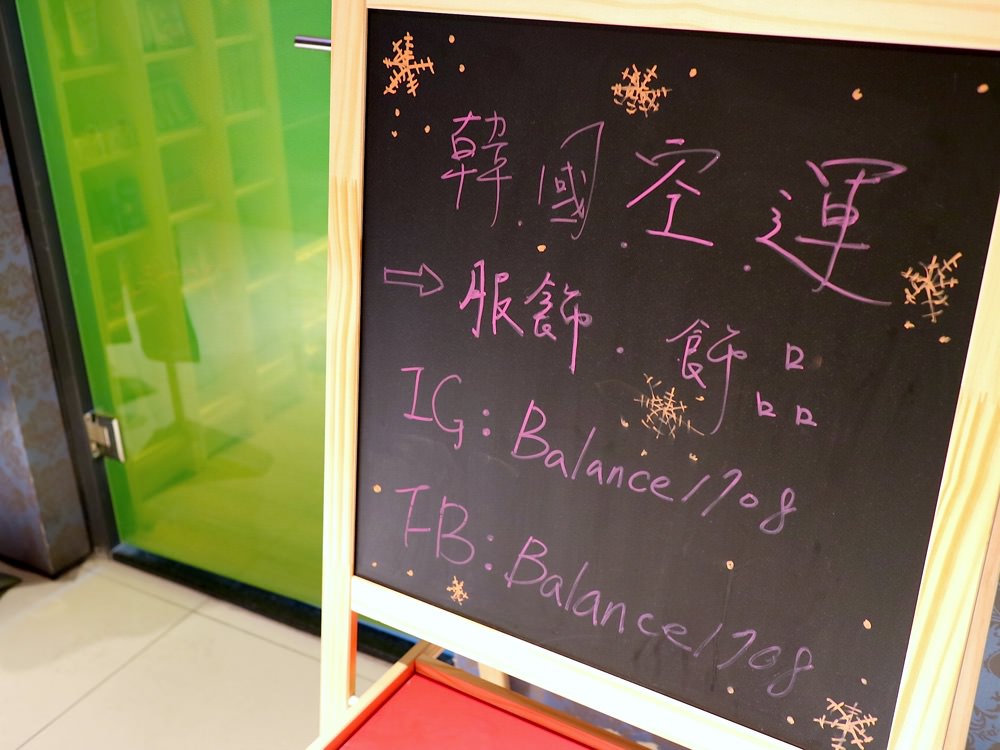 韓.國.空.運
⇨服飾.飾品
IG:Balance1708
FB:Balance1708